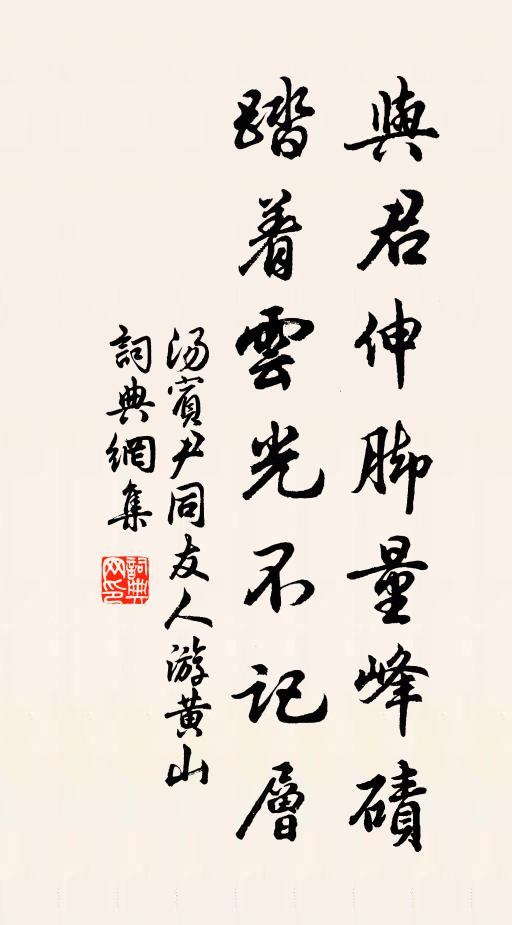 與君伸脚量峰磧
踏着雲光不記層
湯賓尹同友人游黄山
詞典網集
詞典網印